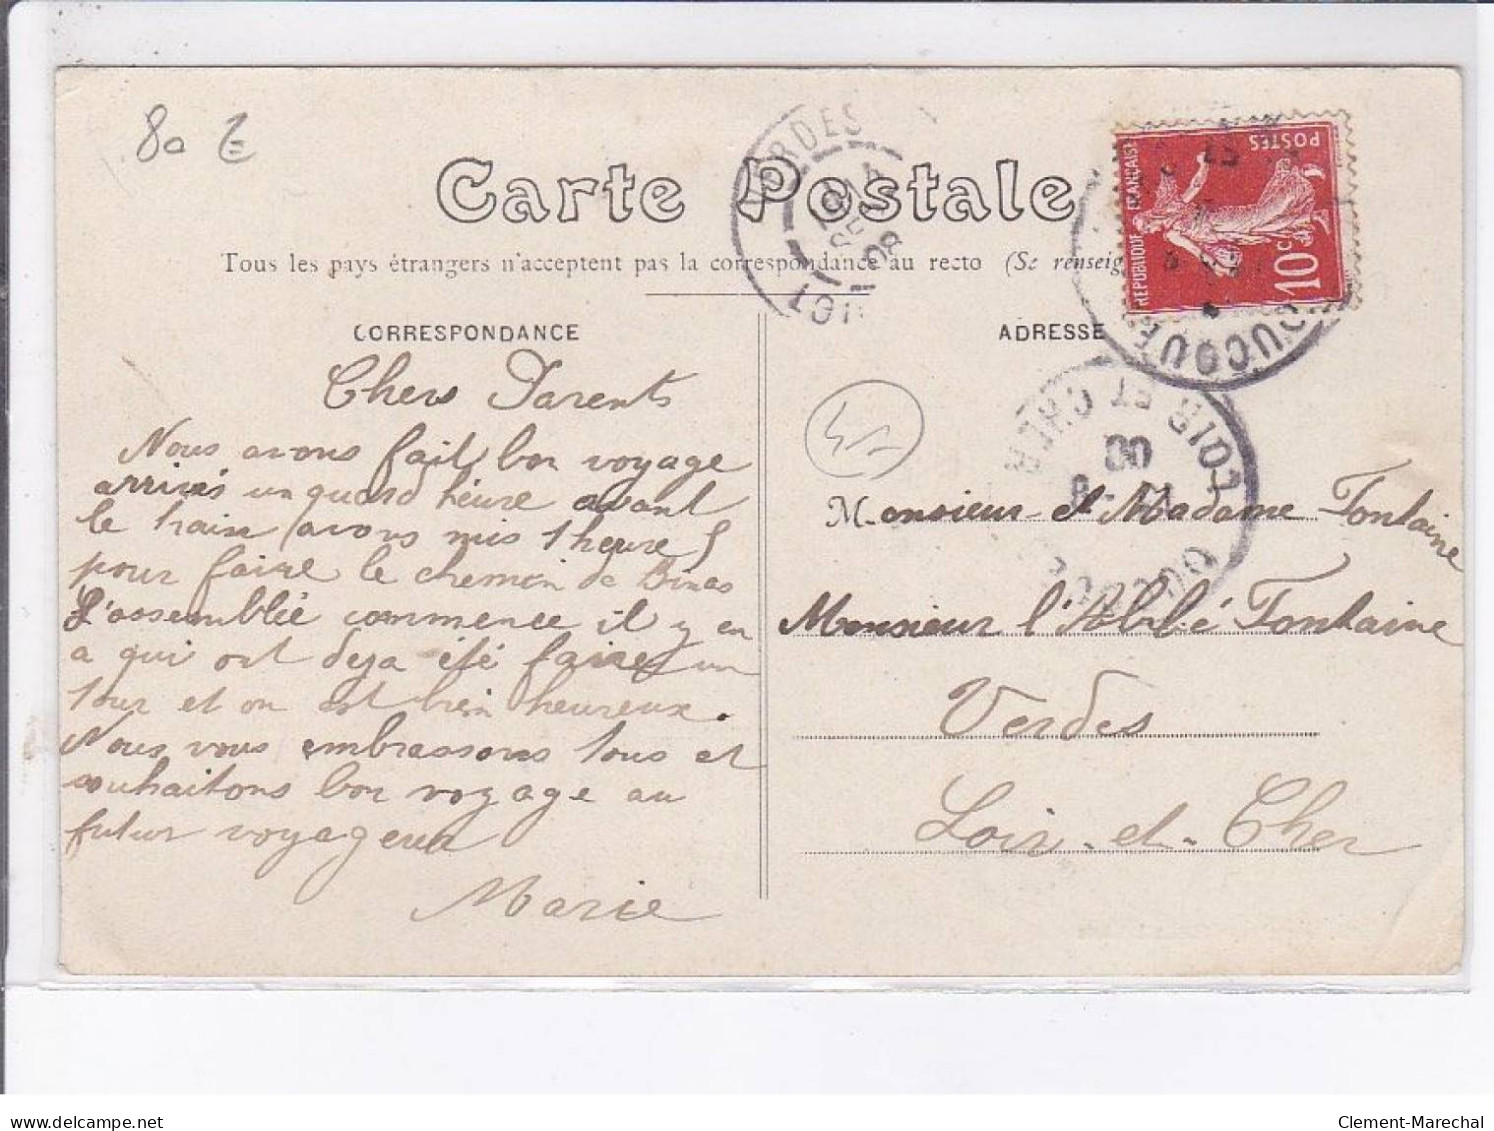 80 E
Carte Postale
Tous les pays étrangers n'acceptent pas la correspondance au recto (Se renseig
CORRESPONDANCE
Chers Parents
Nous avons fait bon voyage
arrivés un quard héure avant
le train (avons mis 1 heure)
pour faire le chemin de Binas
L'assemblée commence il y en
a qui ont deja été faire un
tour et on est bien heureux.
Nous vous embrassons tous et
souhaitons bon voyage au
futur voyageur
Marie
VERDES
ADRESSE
REPUBLIQUE FRANÇAISE
POSTES
10c
OUCQUES
LOIR ET CHER
08
OUCQUES
45
M-onsieur et Madame Fontaine
Monsieur l'Abbé Fontaine
Verdes
Loir-et-Cher
delcampe.net
Clement-Marechal